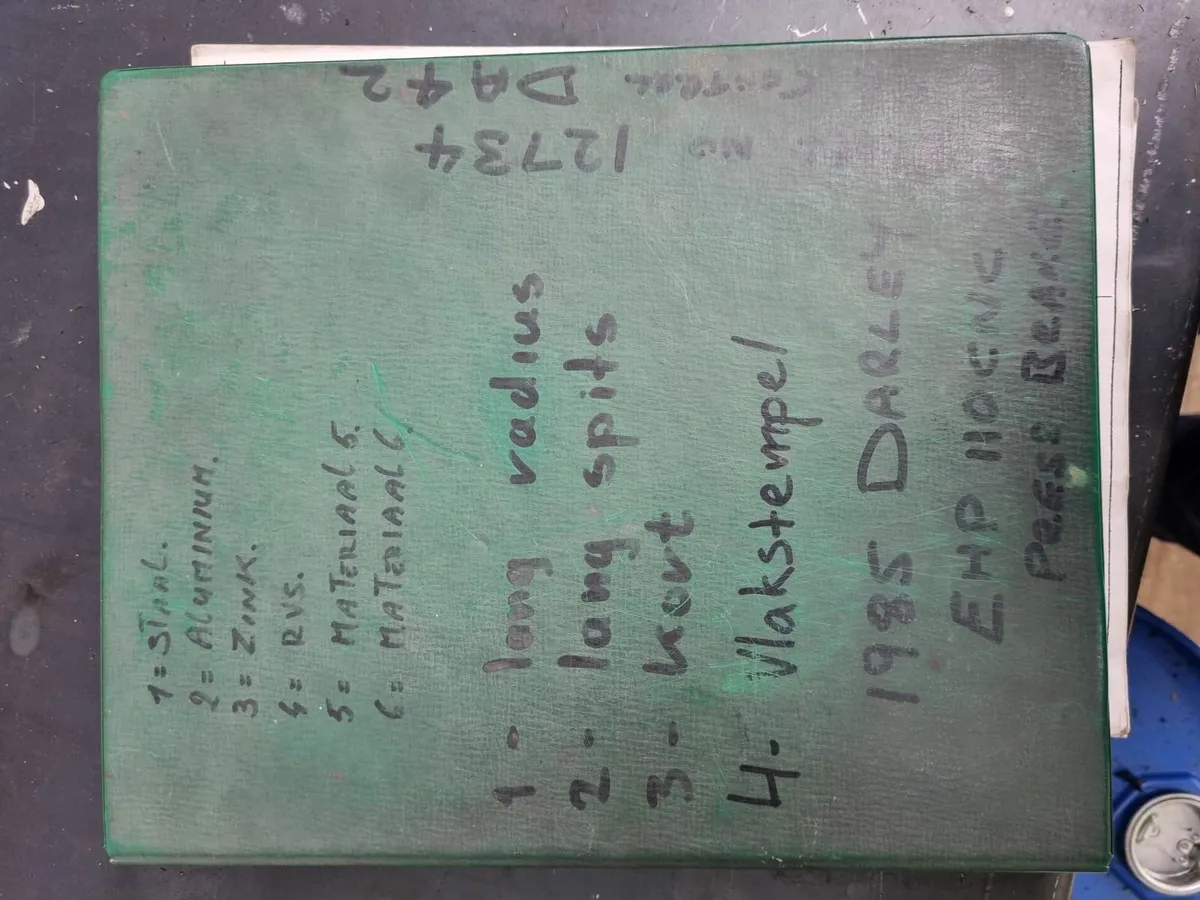 1= STAAL.
2= ALUMINIUM.
3= ZINK.
4= RVS.
5= MATERIAAL 5.
6= MATERIAAL 6.
1- lang radius
2- lang spits
3- kort
4- Vlakstempel
1985 DARLEY
EHP 110
NO 12734
DA42